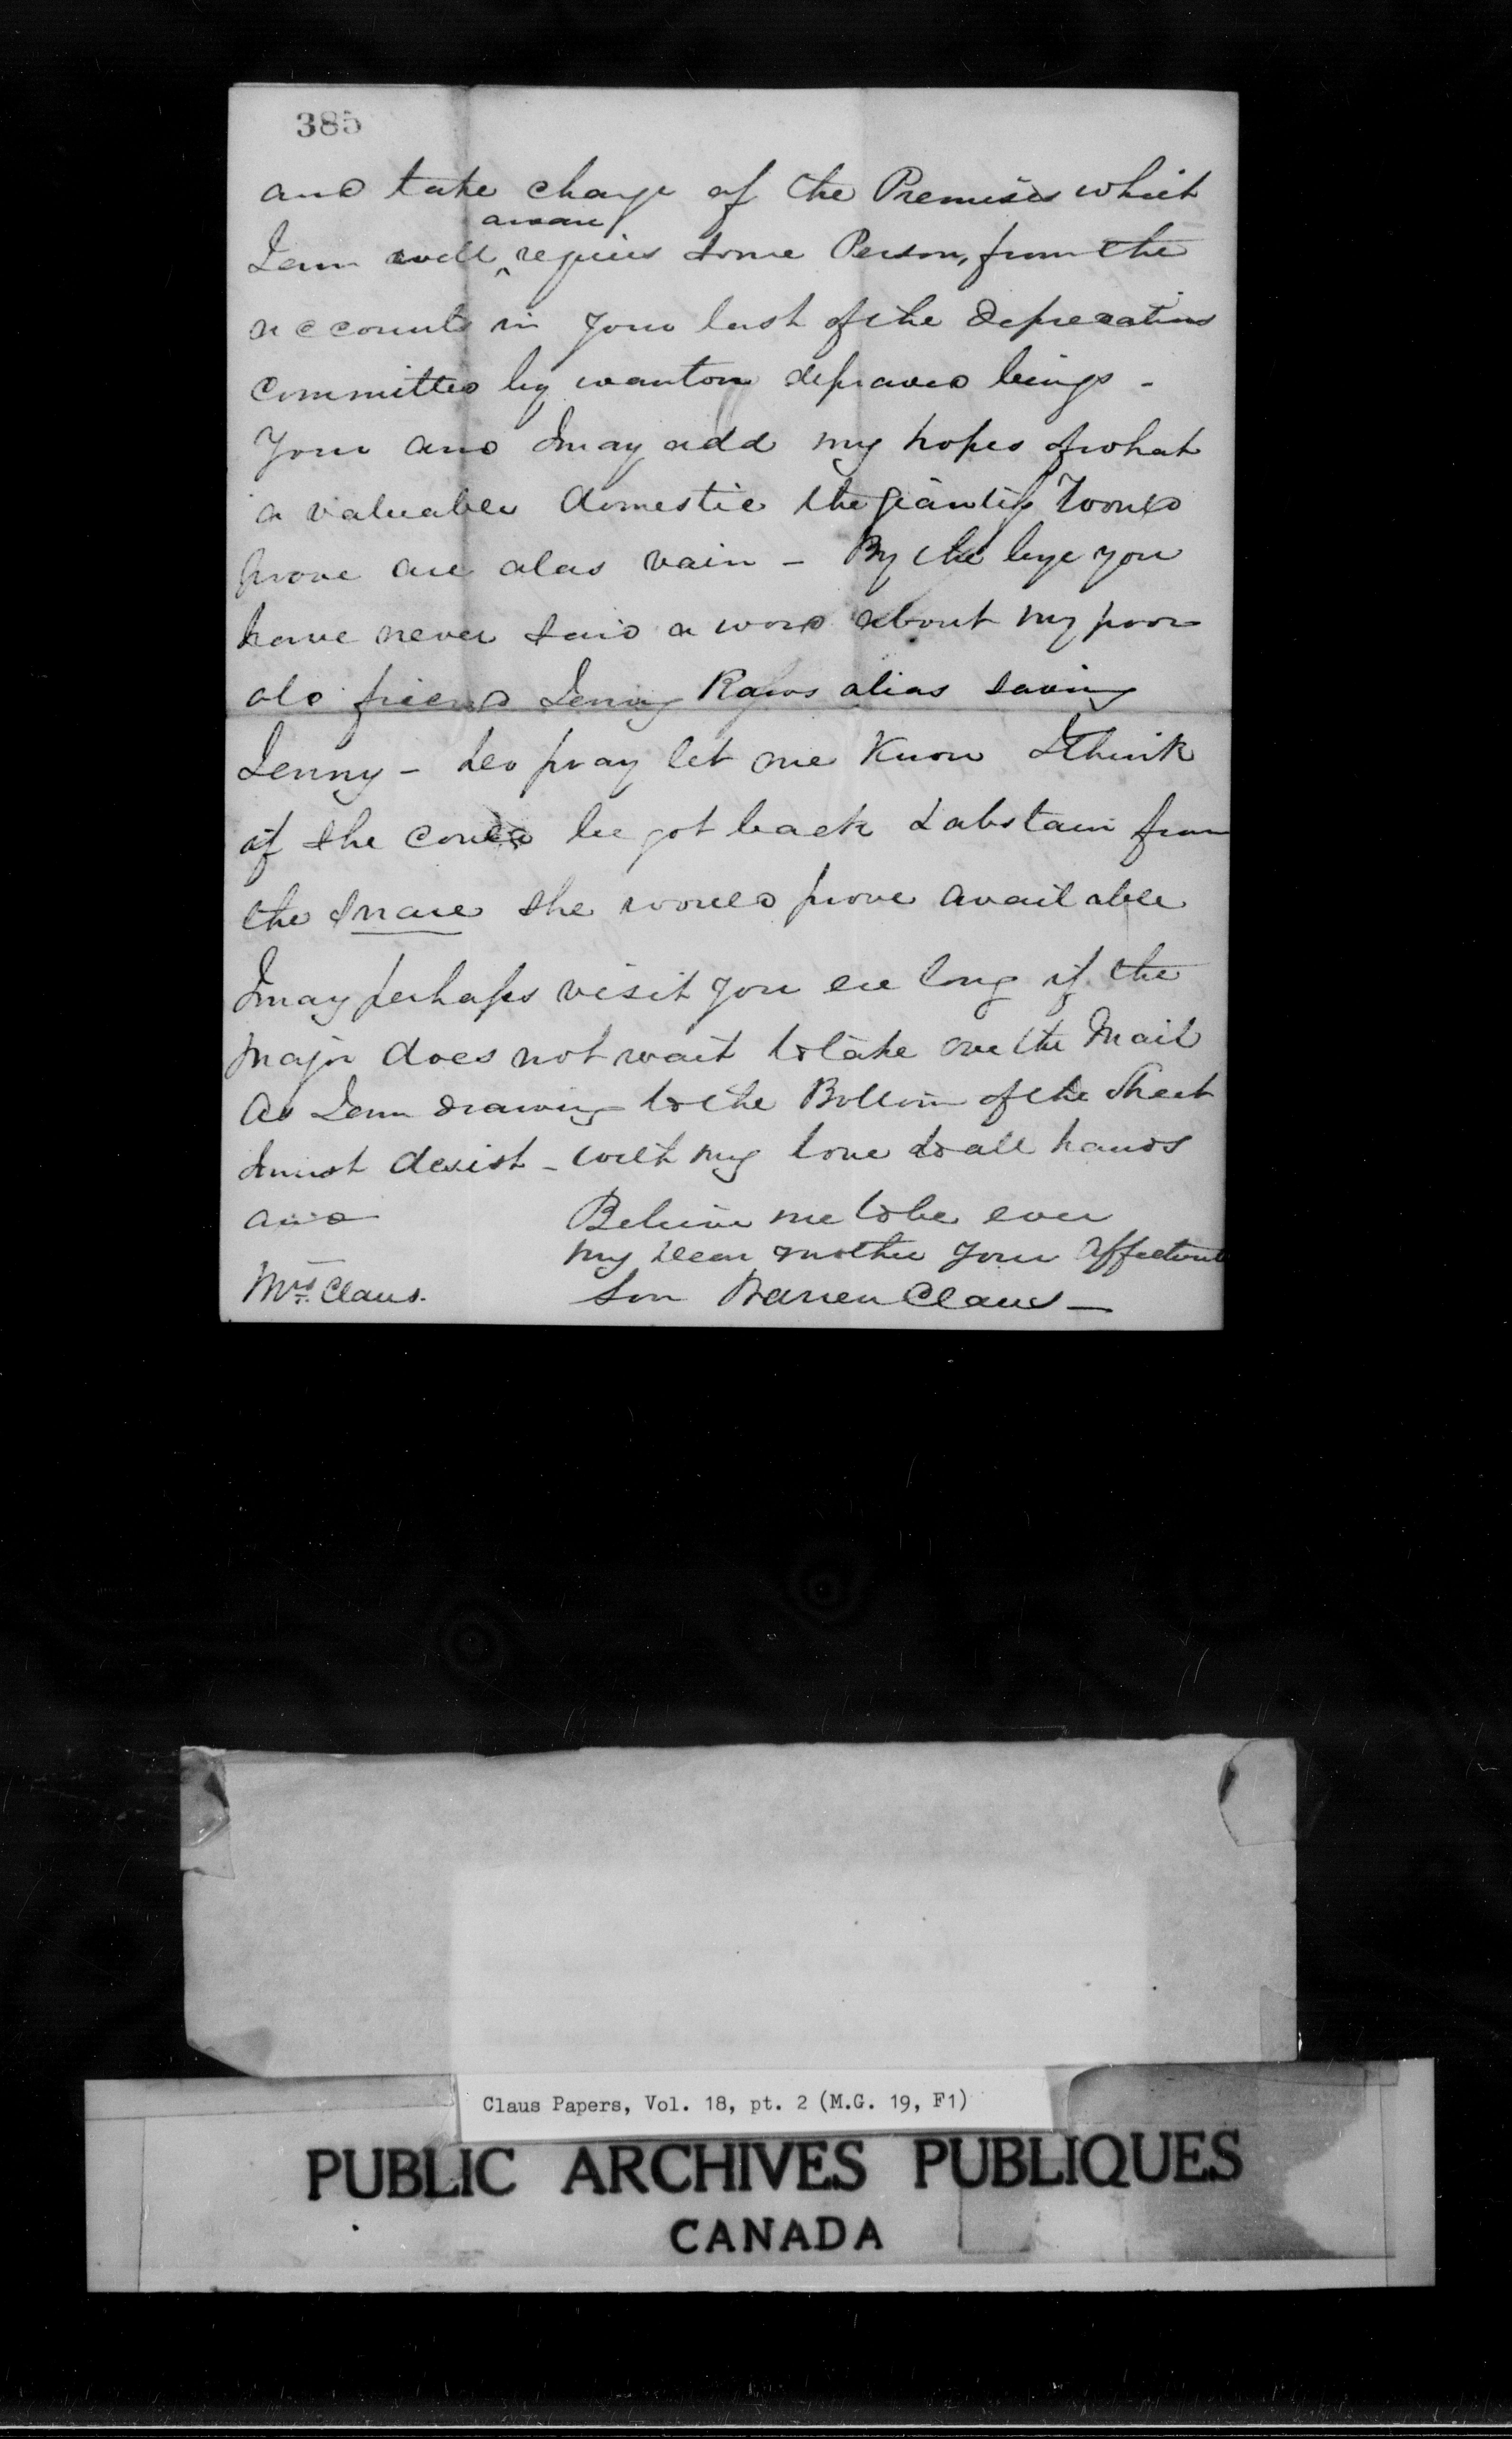 385
and take charge of the Premises which
aware
I am well ^ requires some Person, from the
accounts in your last of the depredations
committed by wanton depraved beings -
Your and I may add my hopes of what
a valuable domestic the would
prove are alas vain - By the bye you
have never said a word about my poor
old friend Jenny Raws alias saving
Jenny - do pray let me Know I think
if she could be got back & abstain from
the snare she would prove available
I may perhaps visit you ere long if the
Major does not wait to take over the Mail
As I am drawing to the Bottom of the Sheet
I must desist - with my love to all hands
and Believe me to be ever
my dear mother your affectionate
Mrs. Claus. Son Warren Claus -
Claus Papers, Vol. 18, pt. 2 (M.G. 19, F1)
PUBLIC ARCHIVES PUBLIQUES
CANADA